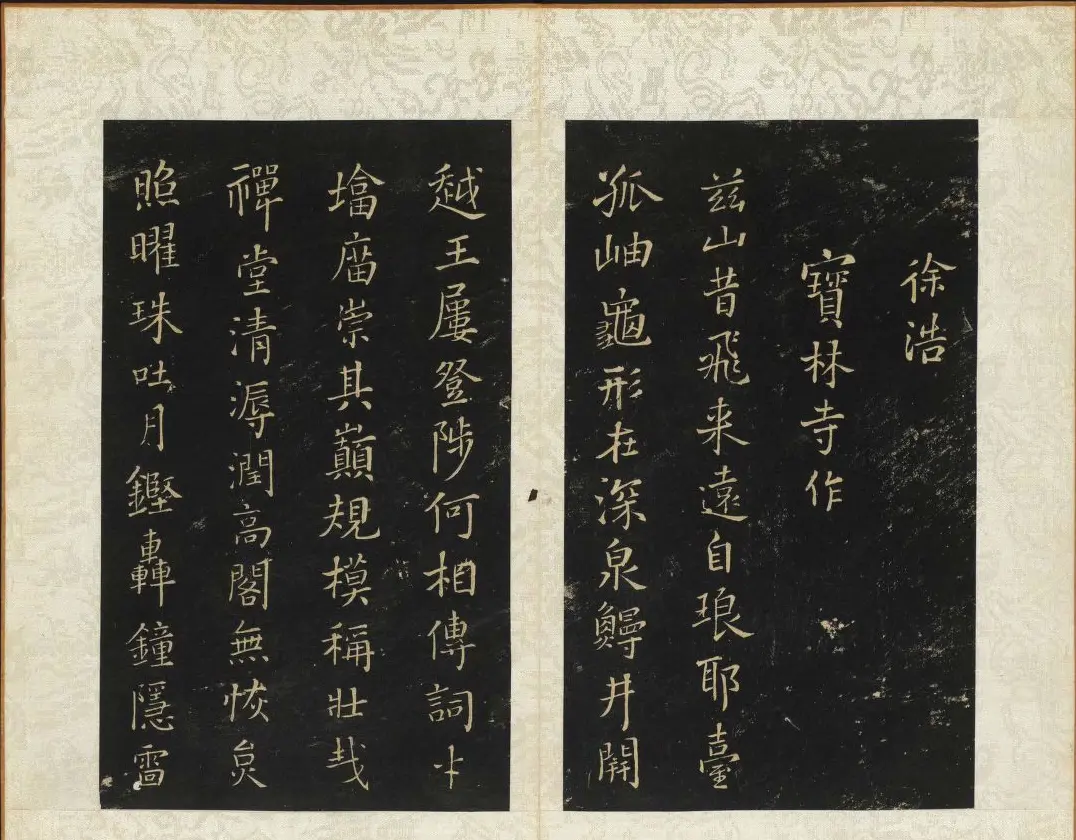 徐浩
寶林寺作
兹山昔飛来遠自琅耶臺
孤岫龜形在深泉鰻井開
越王屢登陟何相傳詞才
墖庿崇其巔規模稱壯哉
禪堂清溽潤高閣無恢炱
照曜珠吐月鏗轟鐘隱雷